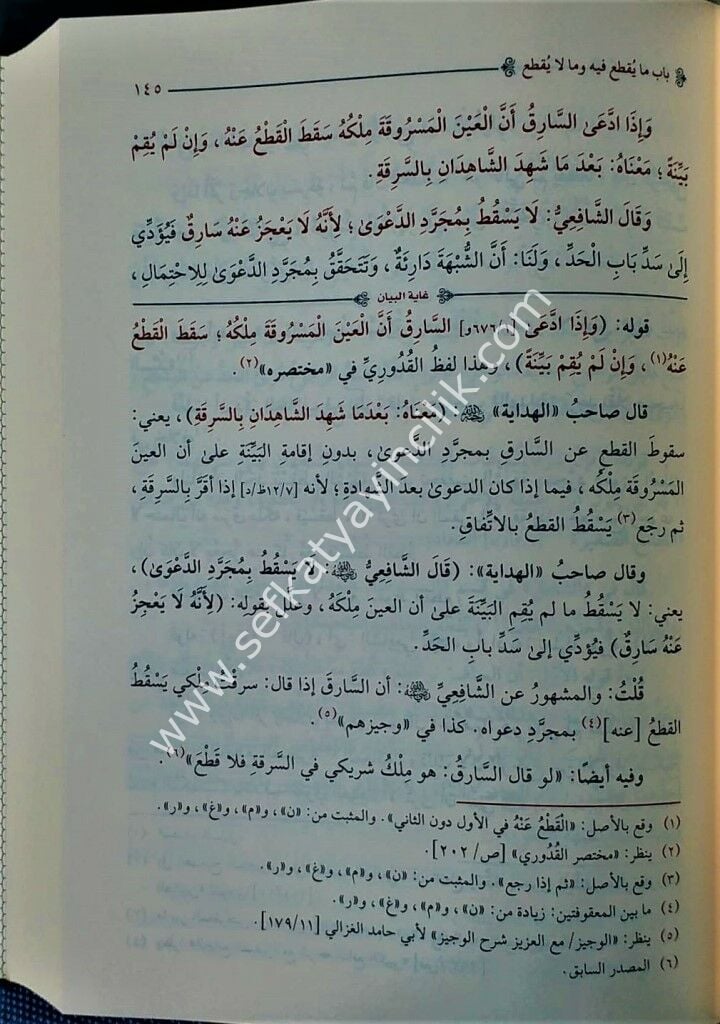 باب ما يُقطع فيه وما لا يُقطع
١٤٥
وَإِذَا ادَّعَىٰ السَّارِقُ أَنَّ الْعَيْنَ الْمَسْرُوقَةَ مِلْكُهُ سَقَطَ الْقَطْعُ عَنْهُ ، وَإِنْ لَمْ يُقِمْ
بَيِّنَةً ؛ مَعْنَاهُ: بَعْدَ مَا شَهِدَ الشَّاهِدَانِ بِالسَّرِقَةِ .
وَقَالَ الشَّافِعِيُّ: لَا يَسْقُطُ بِمُجَرَّدِ الدَّعْوَىٰ ؛ لِأَنَّهُ لَا يَعْجَزُ عَنْهُ سَارِقٌ فَيُؤَدِّي
إِلَىٰ سَدِّ بَابِ الْحَدِّ ، وَلَنَا: أَنَّ الشُّبْهَةَ دَارِئَةٌ ، وَتَتَحَقَّقُ بِمُجَرَّدِ الدَّعْوَىٰ لِلِاحْتِمَالِ ،
غاية البيان
قوله: (وَإِذَا ادَّعَىٰ [٦٧٦/١و] السَّارِقُ أَنَّ الْعَيْنَ الْمَسْرُوقَةَ مِلْكُهُ ؛ سَقَطَ الْقَطْعُ
عَنْهُ(١) ، وَإِنْ لَمْ يُقِمْ بَيِّنَةً) ، وهذا لفظُ القُدُورِيِّ في «مختصره»(٢) .
قال صاحبُ «الهداية» ﷫: (مَعْنَاهُ: بَعْدَمَا شَهِدَ الشَّاهِدَانِ بِالسَّرِقَةِ) ، يعني:
سقوطَ القطعِ عن السَّارقِ بمجرَّدِ الدَّعوىٰ ، بدونِ إقامةِ البَيِّنَةِ علىٰ أن العينَ
المَسْرُوقَةَ مِلْكُه ، فيما إذا كان الدعوىٰ بعدَ الشَّهادةِ ؛ لأنه [١٢/٧ظ/د] إذا أقَرَّ بالسَّرِقَةِ ،
ثم رجَع(٣) يَسْقُطُ القطعُ بالاتِّفاقِ.
وقال صاحبُ «الهداية»: (قَالَ الشَّافِعِيُّ ﷫: لَا يَسْقُطُ بِمُجَرَّدِ الدَّعْوَىٰ) ،
يعني: لا يَسْقُطُ ما لم يُقِمِ البَيِّنَةَ علىٰ أن العينَ مِلْكُهُ ، وعلَّل بقولِه: (لِأَنَّهُ لَا يَعْجِزُ
عَنْهُ سَارِقٌ) فيُؤدِّي إلىٰ سَدِّ بابِ الحَدِّ.
قُلْتُ: والمشهورُ عن الشَّافعِيِّ ﷫: أن السَّارقَ إذا قال: سرقْتُ مِلْكي يَسْقُطُ
القطعُ [عنه](٤) بمجرَّدِ دعواه. كذا في «وجيزهم»(٥).
وفيه أيضًا: «لو قال السَّارقُ: هو مِلْكُ شريكي في السَّرقةِ فلا قَطْعَ»(٦).
(١) وقع بالأصل: «الْقَطْعُ عَنْهُ في الأول دون الثاني». والمثبت من: «ن»، و«م»، و«غ»، و«ر».
(٢) ينظر: «مختصر القُدُوري» [ص/٢٠٢].
(٣) وقع بالأصل: «ثم إذا رجع». والمثبت من: «ن»، و«م»، و«غ»، و«ر».
(٤) ما بين المعقوفتين: زيادة من: «ن»، و«م»، و«غ»، و«ر».
(٥) ينظر: «الوجيز/ مع العزيز شرح الوجيز» لأبي حامد الغزالي [١٧٩/١١].
(٦) المصدر السابق.
www.sefkatyayincilik.com